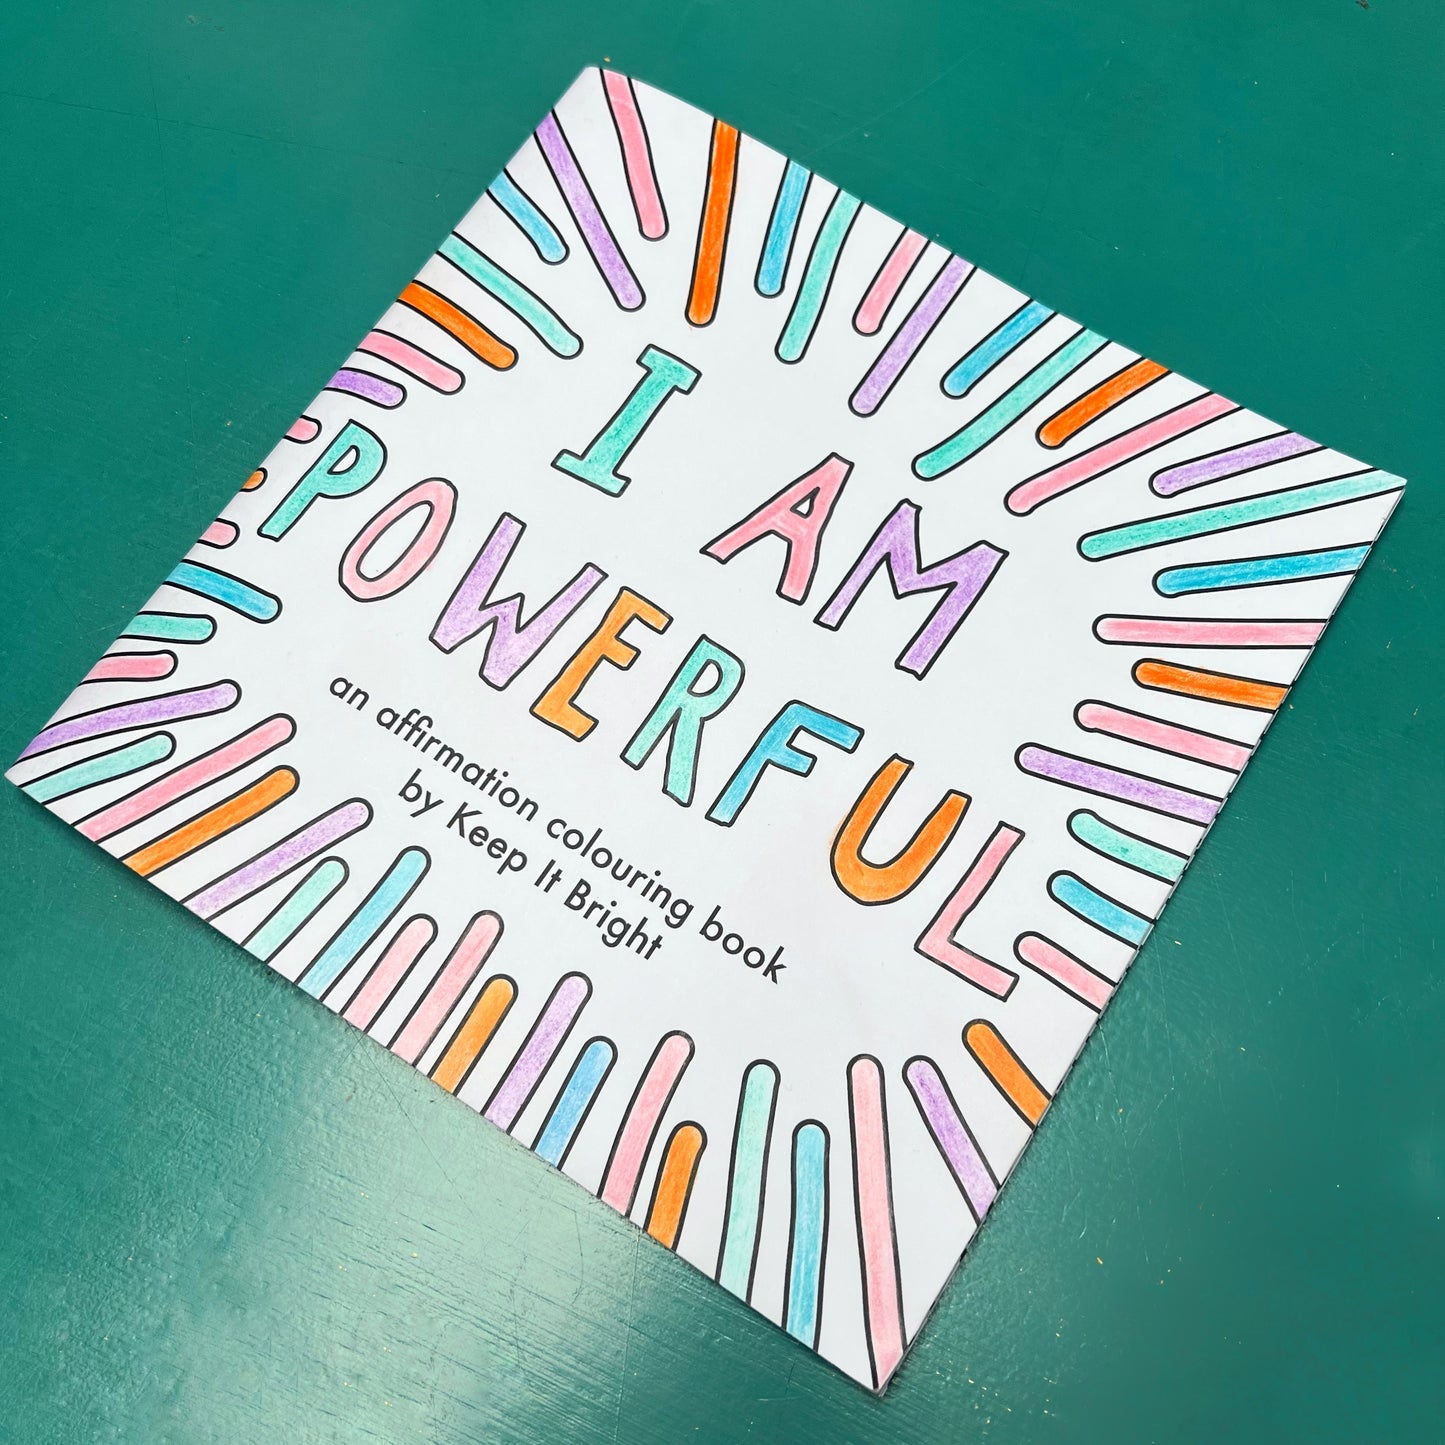 I AM
POWERFUL
an affirmation colouring book
by Keep It Bright